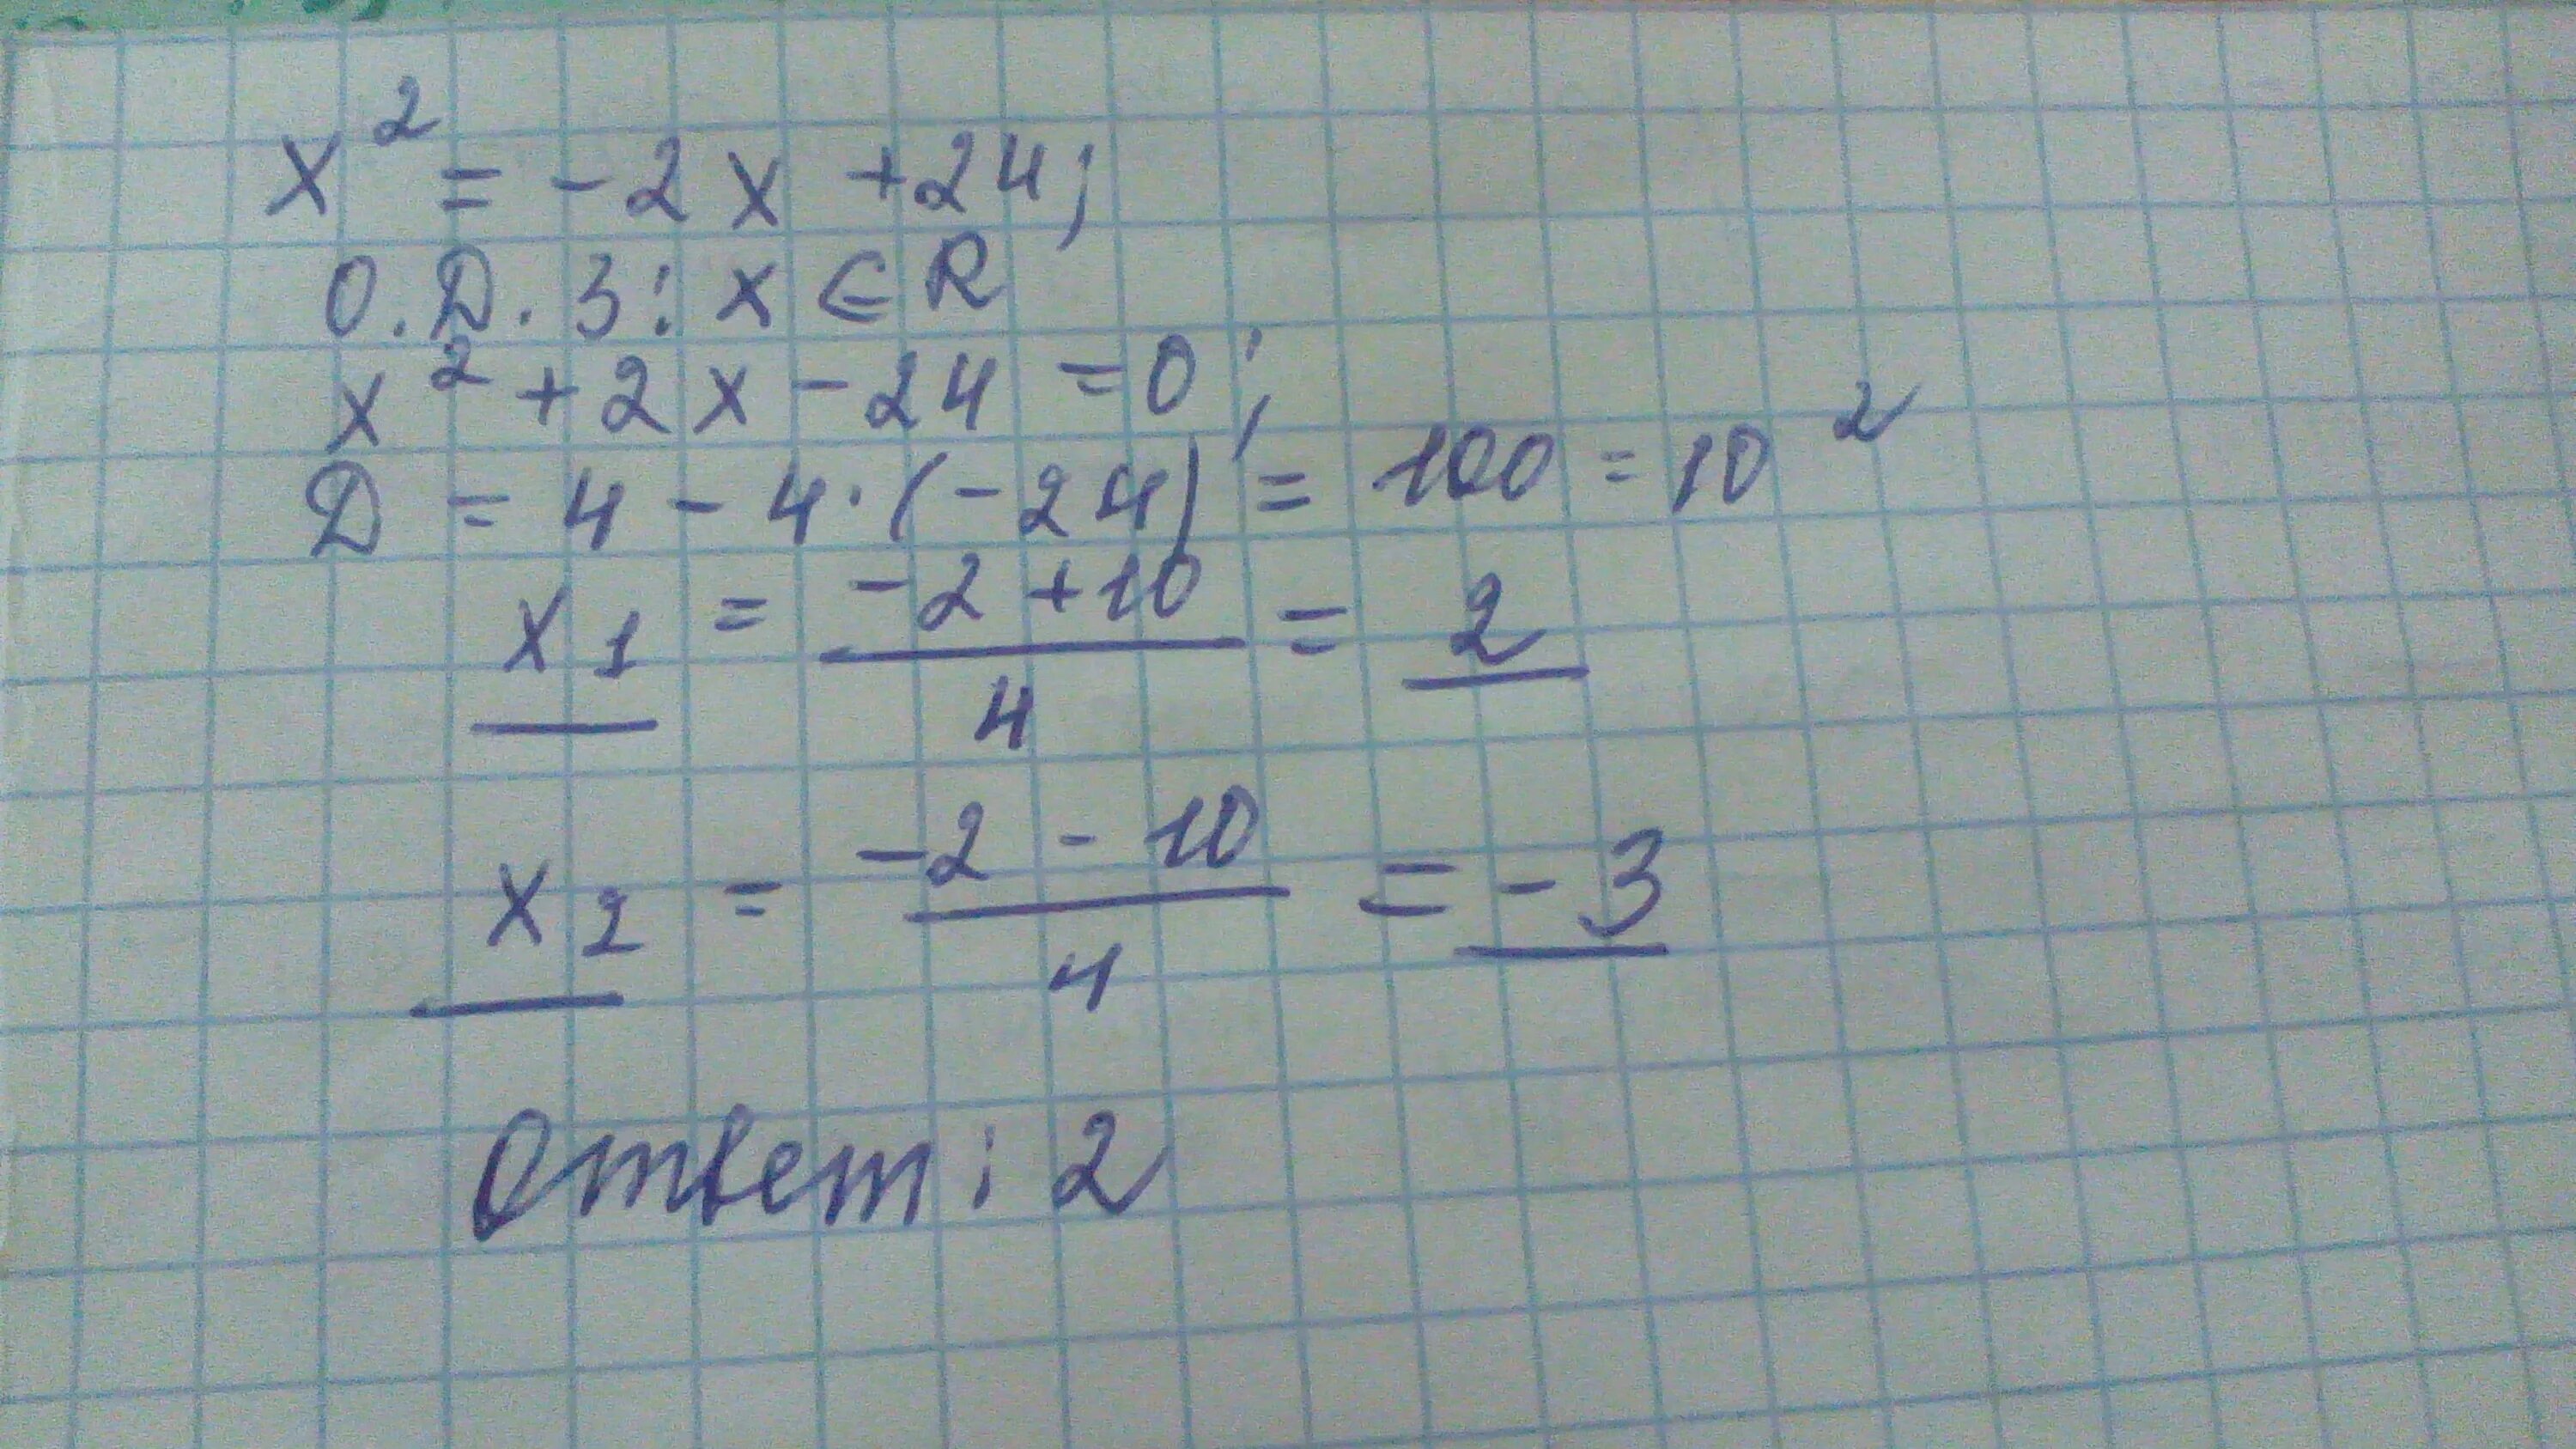 x² = -2x +24;
О.D.З: x ∈ R
x² + 2x - 24 = 0;
D = 4 - 4·(-24) = 100 = 10²
x₁ = (-2+10)/4 = 2
x₂ = (-2 - 10)/4 = -3
Ответ: 2